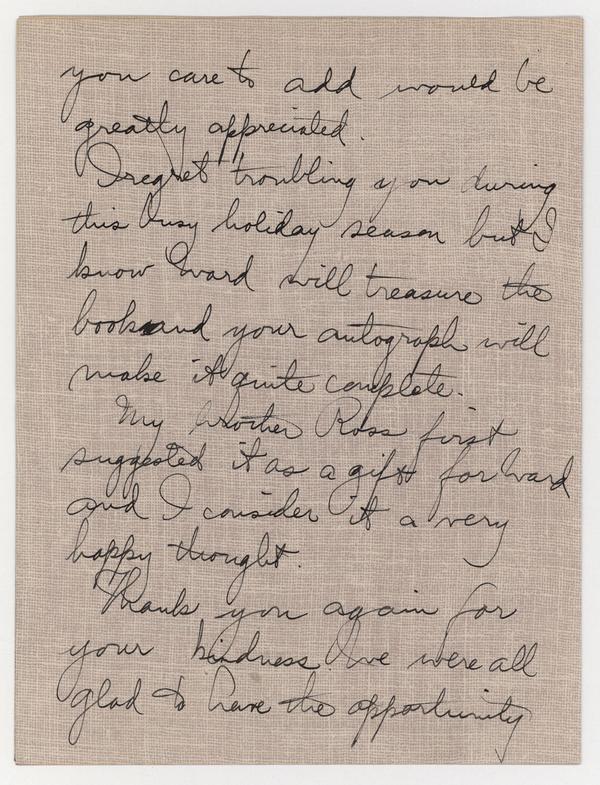 you care to add would be
greatly appreciated.
I regret troubling you during
this busy holiday season but I
know Ward will treasure the
book and your autograph will
make it quite complete.
My brother Ross first
suggested it as a gift for Ward
and I consider it a very
happy thought.
Thank you again for
your kindness. We were all
glad to have the opportunity